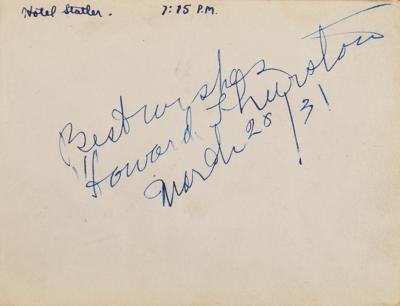 Hotel Statler. 7:15 P.M.
Best wishes
Howard Thurston
March 28/31